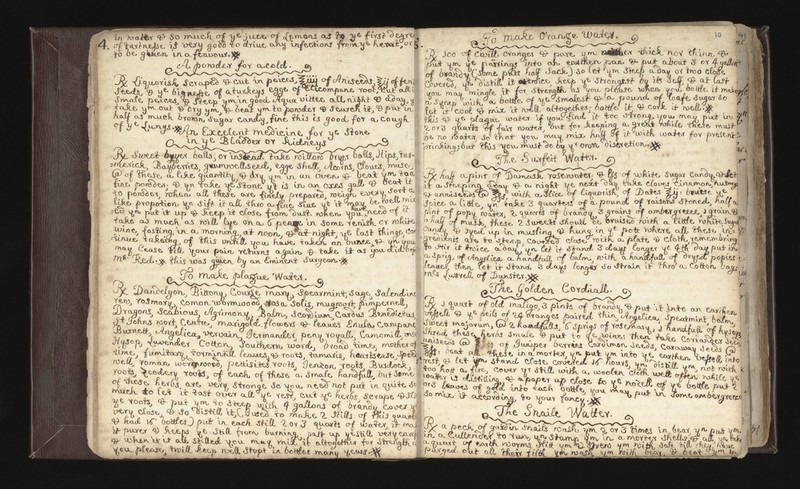 in water & so much of ye juce of Lemons as to ye first degree
4. of tartnesse is very good to drive any infections from ye heart, or
to be given in a feavour.
A powder for a cold.
Rx Liquerish scraped & cut in peices, of Aniseeds, of fenn
Seeds, & ye bignesse of a turkeys egge of Elicompane root, Cut all
Small peices, & Steep ym in good Aqua vitee all night & a day, yn
take ym out & dry ym, & beat ym to powder & search it, & put in
half as much brown sugar candy, fine this is good for a cough
of ye Lungs.
An Excelent medicine for ye Stone
in ye Bladder or Kidneys
Rx Sweet balls, or instead take bryes balls, Hips, tur-
merick, Bayberries, gromwell seed, egge shells, Acorns, Cloves, mase,
of these a like quantity, & dry ym in an oven & beat ym to a
fine powder, & yn take ye stone yt is in an oxes gall & beat it
to powder, when all these are finely prepared, weigh every sort a
like propotion yn sift it all thro a fine sive yt it may be well mix
ed yn put it up & keep it close from dust. when you have need of it
take as much as will lye on a 6 pence in some renish or white
wine, fasting in a morning, at noon, & at night, ye last things, con
tinue taking of this untill you have taken an ounce, & yn you
may cease till your pain returns again & take it as you did by
Mr Redi: this was given by an Eminent Surgeon
To make plague Water.
Rx Dandelyon, Bittony, Couge mary, Spearmint, Sage, Salendine
rew, rosmary, Comon wormwood, rosa solis, mugwort, pimpernell,
Dragons, Scabious, Agrimony, Balm, Scordium, Cardus Benedictus
St Johns wort, Centre, marigold flowers & leaves Enula, Campane
Burnett, Angelica, vervain, Jermander penyroyall, Camomill, mo
Hysop, Lavender Cotton, Southern ward, broad time, mother of
time, fumitary, torminkill leaves & roots, tamaris, heartsease, Speed
well, roman wormwood, peticites roots, Jenson roots, Burdock
roots, Zeodery roots, of each of these a small handfull, but some
of these herbs are very strong so you need not put in quite so
much to let it tast over all ye rest, cut ye herbs, scrape & slice
ye roots, & put ym to steep with 4 gallons of brandy cover it
very close, & so distill it, (I used to make 2 stills of this quantity
& had 16 bottles) put in each still 2 or 3 quarts of water, it ma
it purer & keeps ye still from burning, past up ye still very care
& when it is all stilled you may mix it altogether for strength
you please, twill keep well stopt in bottles many years.
10
To make Orange Water.
Rx 300 of Civill oranges & pare ym neither thick nor thinn, &
put ym ye pairings into an earthen pan & put about 3 or 4 gallons
of brandy (some put half Sack) so let ym steep a day or two close
covered, yn distill it & keep ye strongest by it self, & at last
you may mingle it for strength as you please when you bottle it make
a syrup with a bottle of ye smallest & a pound of loafe sugar so
let it cool & mix it well altogether, bottle it & cork it well.
this & ye plague water if you find it too strong, you may put in
2 or 3 quarts of fair water, but for keeping a great while there must
be no water, so that you may mix half of it with water for present
drinking, but this you must do by yr own discretion.
The Surfeit Water.
Rx half a pint of Damask rosewater, & of white sugar Candy, & set
it a steeping a day & a night ye next day take cloves Cinnamon, nutmeg
& anniseeds with a slice of liquerish, of Dates bruise ye
spice a litle, yn take 3 quarters of a pound of raisons stoned, half a
pint of popy water, 2 quarts of brandy, 3 grains of ambergreece, 2 grains &
a half of musk, these 2 Sweets should be bruised with a litle white sugar
Candy & tyed up in musling & hung in ye pott where all these in-
gredients are to steep, covered close with a plate & cloth, remembring
to stir it twice a day, yn let it stand 3 days longer ye 4th day put in
a sprig of Angelica a handfull of balm, with a handfull of dryed popies
leaves, then let it stand 3 days longer so strain it thro a Cotton bag.
Mrs Luttrell of Dunster.
The Golden Cordiall.
Rx 1 quart of old maligo, 3 pints of brandy & put it into an earthen
vessell & ye peils of 24 oranges paired thin, Angelica, Spearmint balm,
sweet majorum, 2 handfulls, 6 sprigs of rosemary, 1 handfull of hysop
shred these herbs small & put to ye wine; then take Coriander seeds
anniseeds or Juniper berries Cardimon seeds, Caraway Seeds
beat all these in a morter, yn put ym into ye earthen vessell into
rest, & let ym stand close covered 16 hours, yn distill ym, not with
too hott a fire, cover yr still with a woollen clth well often while ye
water is distilling, & a paper up close to ye nosell of ye bottle put 2
or 3 leaves of gold into each bottle, you may put in some ambergreece
so mix it according to your fancy
The Snaile Watter.
Rx a peck of garden snails wash ym 2 or 3 times in bear yn put ym
in a Cullender to run, yn stamp ym in a morter shells & all yn take
a quart of earth worms slit ym & scour ym with salt till they have
purged out all their filth yn wash ym with bear, & beat ym in